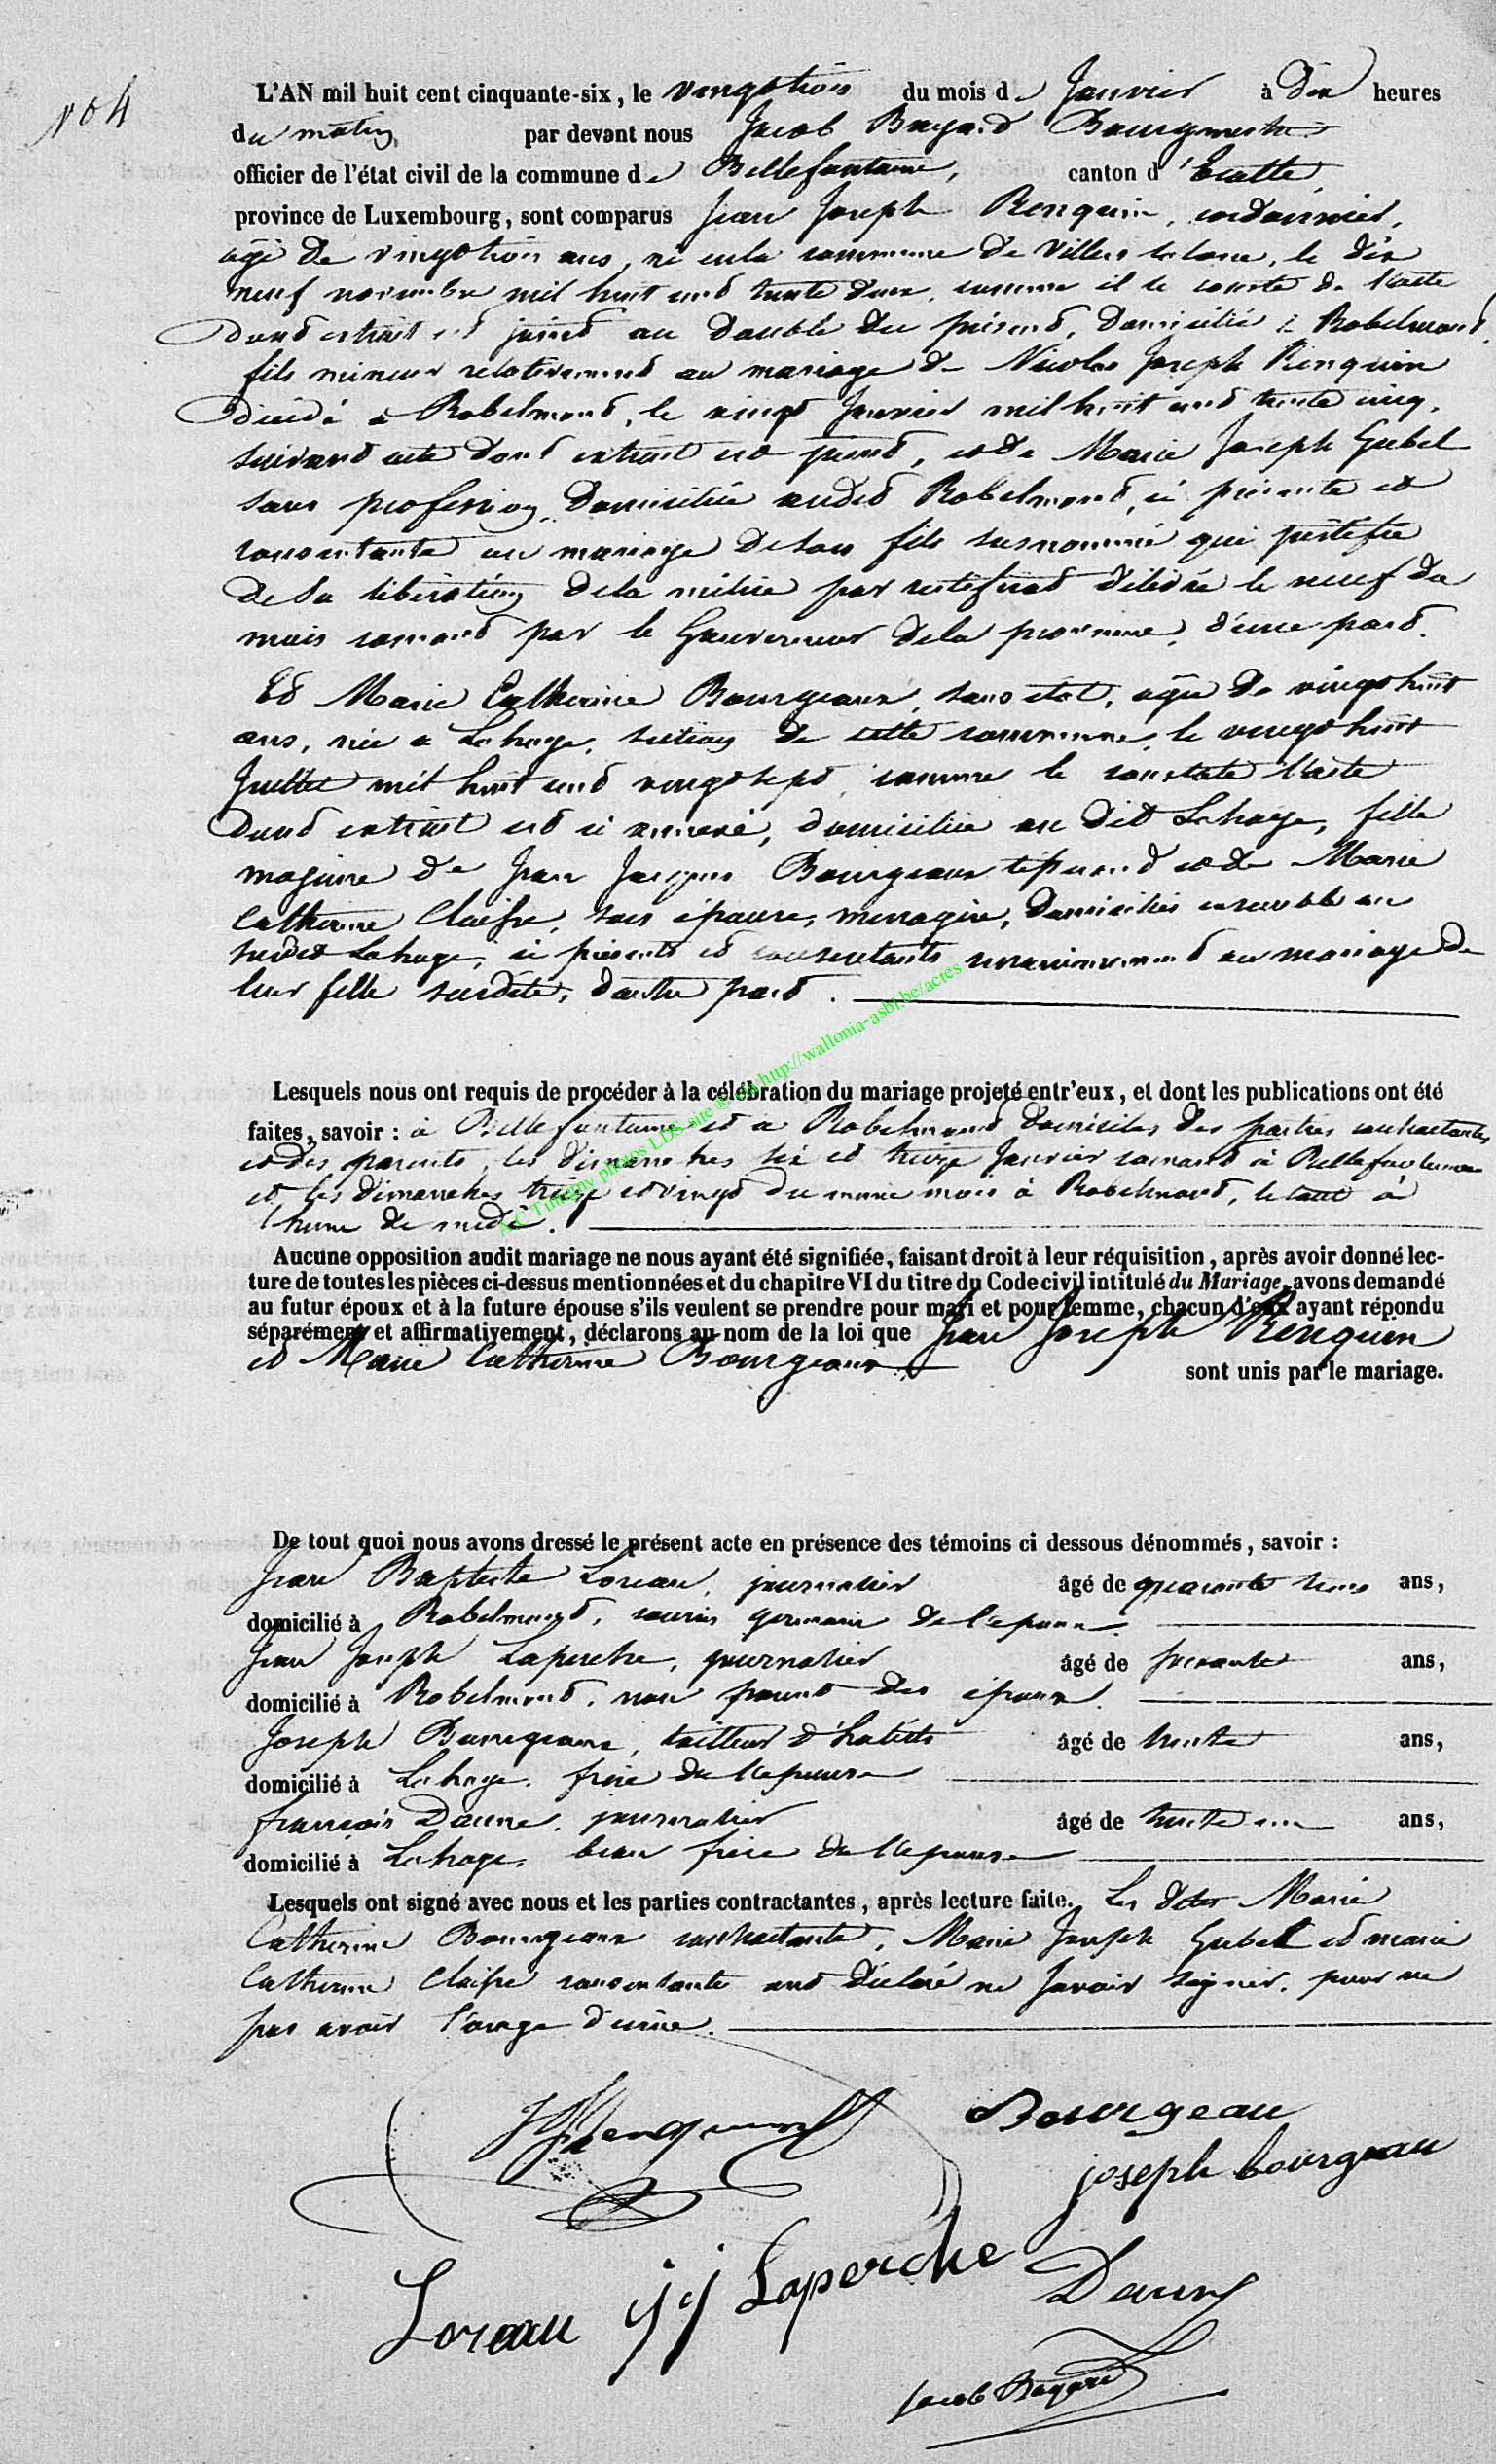 N° 4
L'AN mil huit cent cinquante-six, le vingt trois du mois de Janvier à dix heures
du matin, par devant nous Jacob Bayard Bourgmestre
officier de l'état civil de la commune de Bellefontaine, canton d'Etalle,
province de Luxembourg, sont comparus Jean Joseph Renquin, cordonnier,
âgé de vingt trois ans, né en la commune de Villers la loue, le dix
neuf novembre mil huit cent trente deux, comme il le conste de l'acte
dont extrait est joint au double du présent, domicilié à Robelmont,
fils mineur relativement au mariage de Nicolas Joseph Renquin
décédé à Robelmont, le vingt Janvier mil huit cent trente cinq,
suivant acte dont extrait est joint, et de Marie Joseph Gubel
sans profession, domiciliée audit Robelmont, ci présente et
consentante au mariage de son fils susnommé qui justifie
de sa libération de la milice par certificat délivré le neuf du
mois courant par le Gouverneur de la province, d'une part.
Et Marie Catherine Bourgeaux, sans état, agée de vingt huit
ans, née à Lahage, section de cette commune, le vingt huit
Juillet mil huit cent vingt sept, comme le constate l'acte
dont extrait est ci annexé, domiciliée au dit Lahage, fille
majeure de Jean Jacques Bourgeaux et de Marie
Catherine Claisse, son épouse, ménagère, domiciliés ensemble au
susdit Lahage, ci présents et consentants au mariage de
leur fille susdite, d'autre part.
Lesquels nous ont requis de procéder à la célébration du mariage projeté entr'eux, et dont les publications ont été
faites, savoir : à Bellefontaine et à Robelmont domiciles des parties contractantes
et des parents, les dimanches six et treize Janvier courant à Bellefontaine
et les dimanches treize et vingt du même mois à Robelmont, le tout à
l'heure de midi.
Aucune opposition audit mariage ne nous ayant été signifiée, faisant droit à leur réquisition, après avoir donné lec-
ture de toutes les pièces ci-dessus mentionnées et du chapitre VI du titre du Code civil intitulé du Mariage, avons demandé
au futur époux et à la future épouse s'ils veulent se prendre pour mari et pour femme, chacun d'eux ayant répondu
séparément et affirmativement, déclarons au nom de la loi que Jean Joseph Renquin
et Marie Catherine Bourgeaux
sont unis par le mariage.
De tout quoi nous avons dressé le présent acte en présence des témoins ci dessous dénommés, savoir :
Jean Baptiste Loreau, journalier âgé de quarante ans,
domicilié à Robelmont, cousin germain de l'époux.
Jean Joseph Laperche, journalier âgé de soixante ans,
domicilié à Robelmont, non parent des époux.
Joseph Bourgeaux, tailleur d'habits âgé de trente ans,
domicilié à Lahage, frère de l'épouse
François Daune, journalier âgé de trente un ans,
domicilié à Lahage, beau frère de l'épouse
Lesquels ont signé avec nous et les parties contractantes, après lecture faite. Les dites Marie
Catherine Bourgeaux contractante, Marie Joseph Gubel et marie
Catherine Claisse consentante ont déclaré ne savoir signer, pour ne
pas avoir l'usage d'écrire.
JJ Renquin
Bourgeau
joseph bourgeau
Loreau
jj Laperche
Daune
Jacob Bayard
A.C Timerny photos LDS site © via http://wallonia-asbl.be/actes